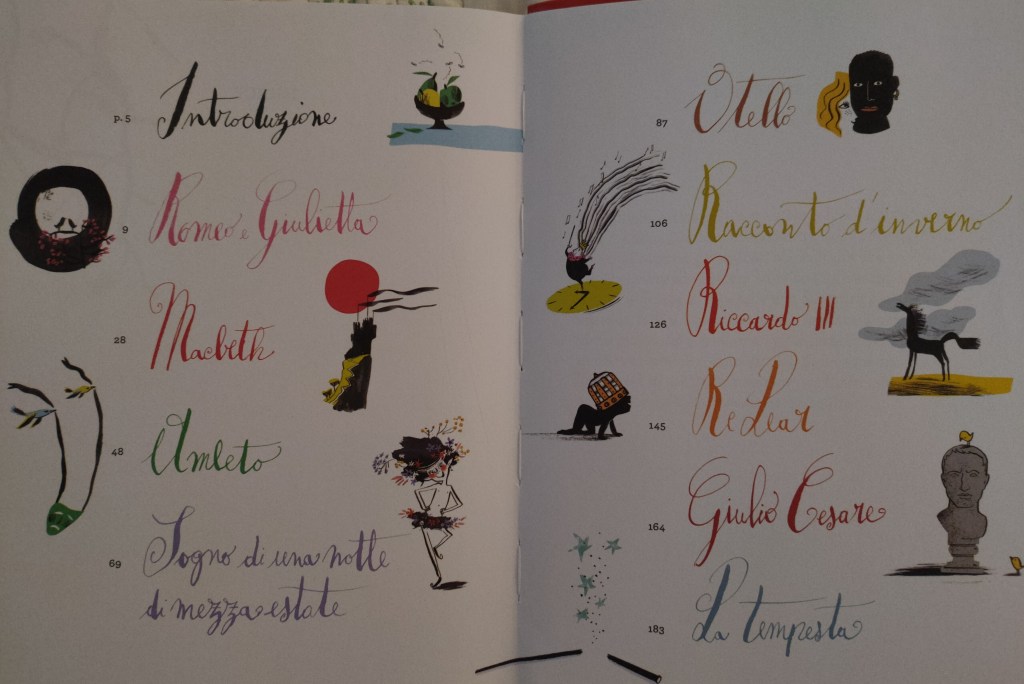 p. 5 Introduzione
9 Romeo e Giulietta
28 Macbeth
48 Amleto
69 Sogno di una notte
di mezza estate
87 Otello
106 Racconto d'inverno
126 Riccardo III
145 Re Lear
164 Giulio Cesare
183 La tempesta